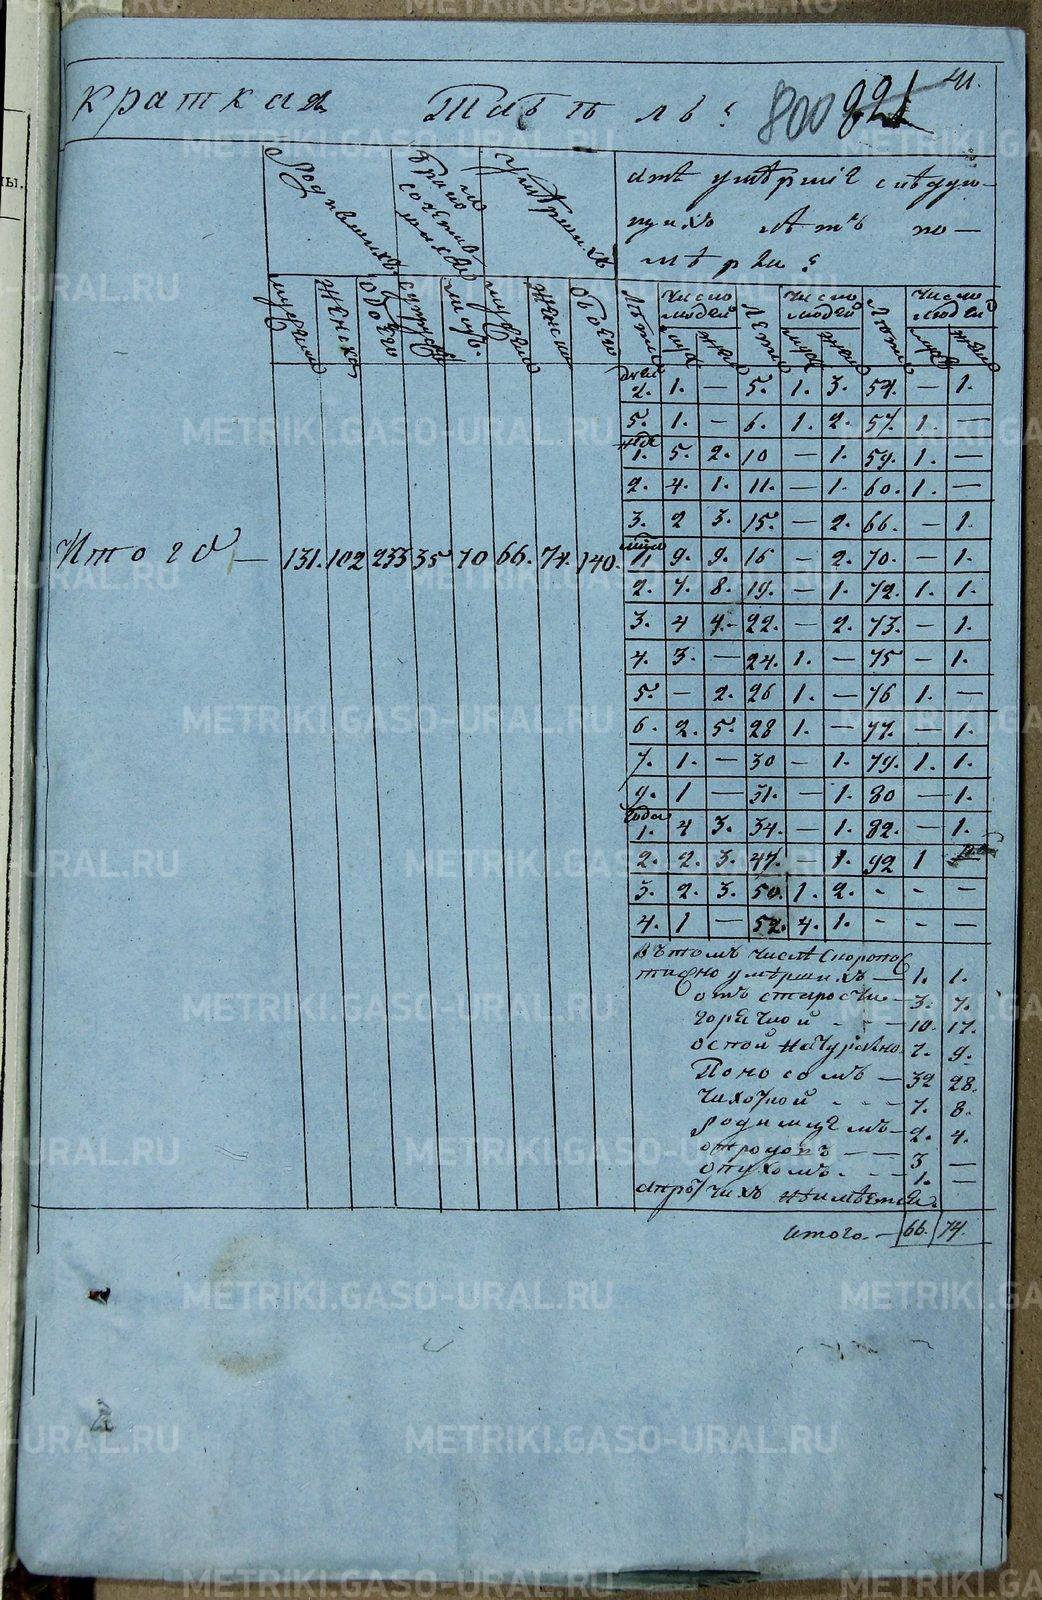 краткая табель: 800 821 41.
Родившихся Умерших
Число людей Число людей Число людей
дней 2. 1. — 5. 1. 3. 54. — 1.
5. 1. — 6. 1. 2. 57. 1. —
1. 5. 2. 10 — 1. 59. 1. —
2. 4. 1. 11. — 1. 60. 1. —
3. 2 3. 15. — 2. 66. — 1.
Итого — 131. 102 233 35 70 66. 74. 140.
1. 9. 9. 16 — 2. 70. — 1.
2. 7. 8. 19. — 1. 72. 1. 1.
3. 4 4. 22. — 2. 73. — 1.
4. 3. — 24. 1. — 75 — 1.
5. — 2. 26 1. — 76 1. —
6. 2. 5. 28 1. — 77. — 1.
7. 1. — 30 — 1. 79. 1. 1.
9. 1 — 31. — 1. 80 — 1.
года 1. 4 3. 34. — 1. 82. — 1.
2. 2. 3. 47. — 1. 92 1
3. 2. 3. 50. 1. 2. - - -
4. 1 — 52. 4. 1. - - —
Вътомъ числѣ скоропос
тижно умершихъ — 1. 1.
отъ старости — 3. 7.
горячкой - - - 10. 17.
оспой натуральной 7. 9.
Поносомъ — 32 28.
чихоткой - - - 7. 8.
родимцемъ — 2. 4.
3 —
опухомъ - - - 1. —
апротчихъ неимѣется.
итого. — 66. 74.
METRIKI.GASO-URAL.RU